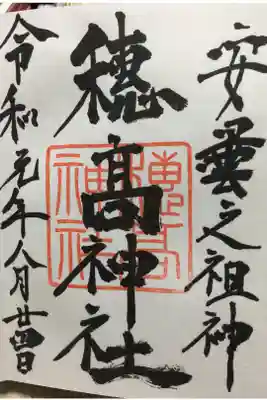 安曇之祖神
穂髙神社
令和元年八月廿四日
穂髙
神社